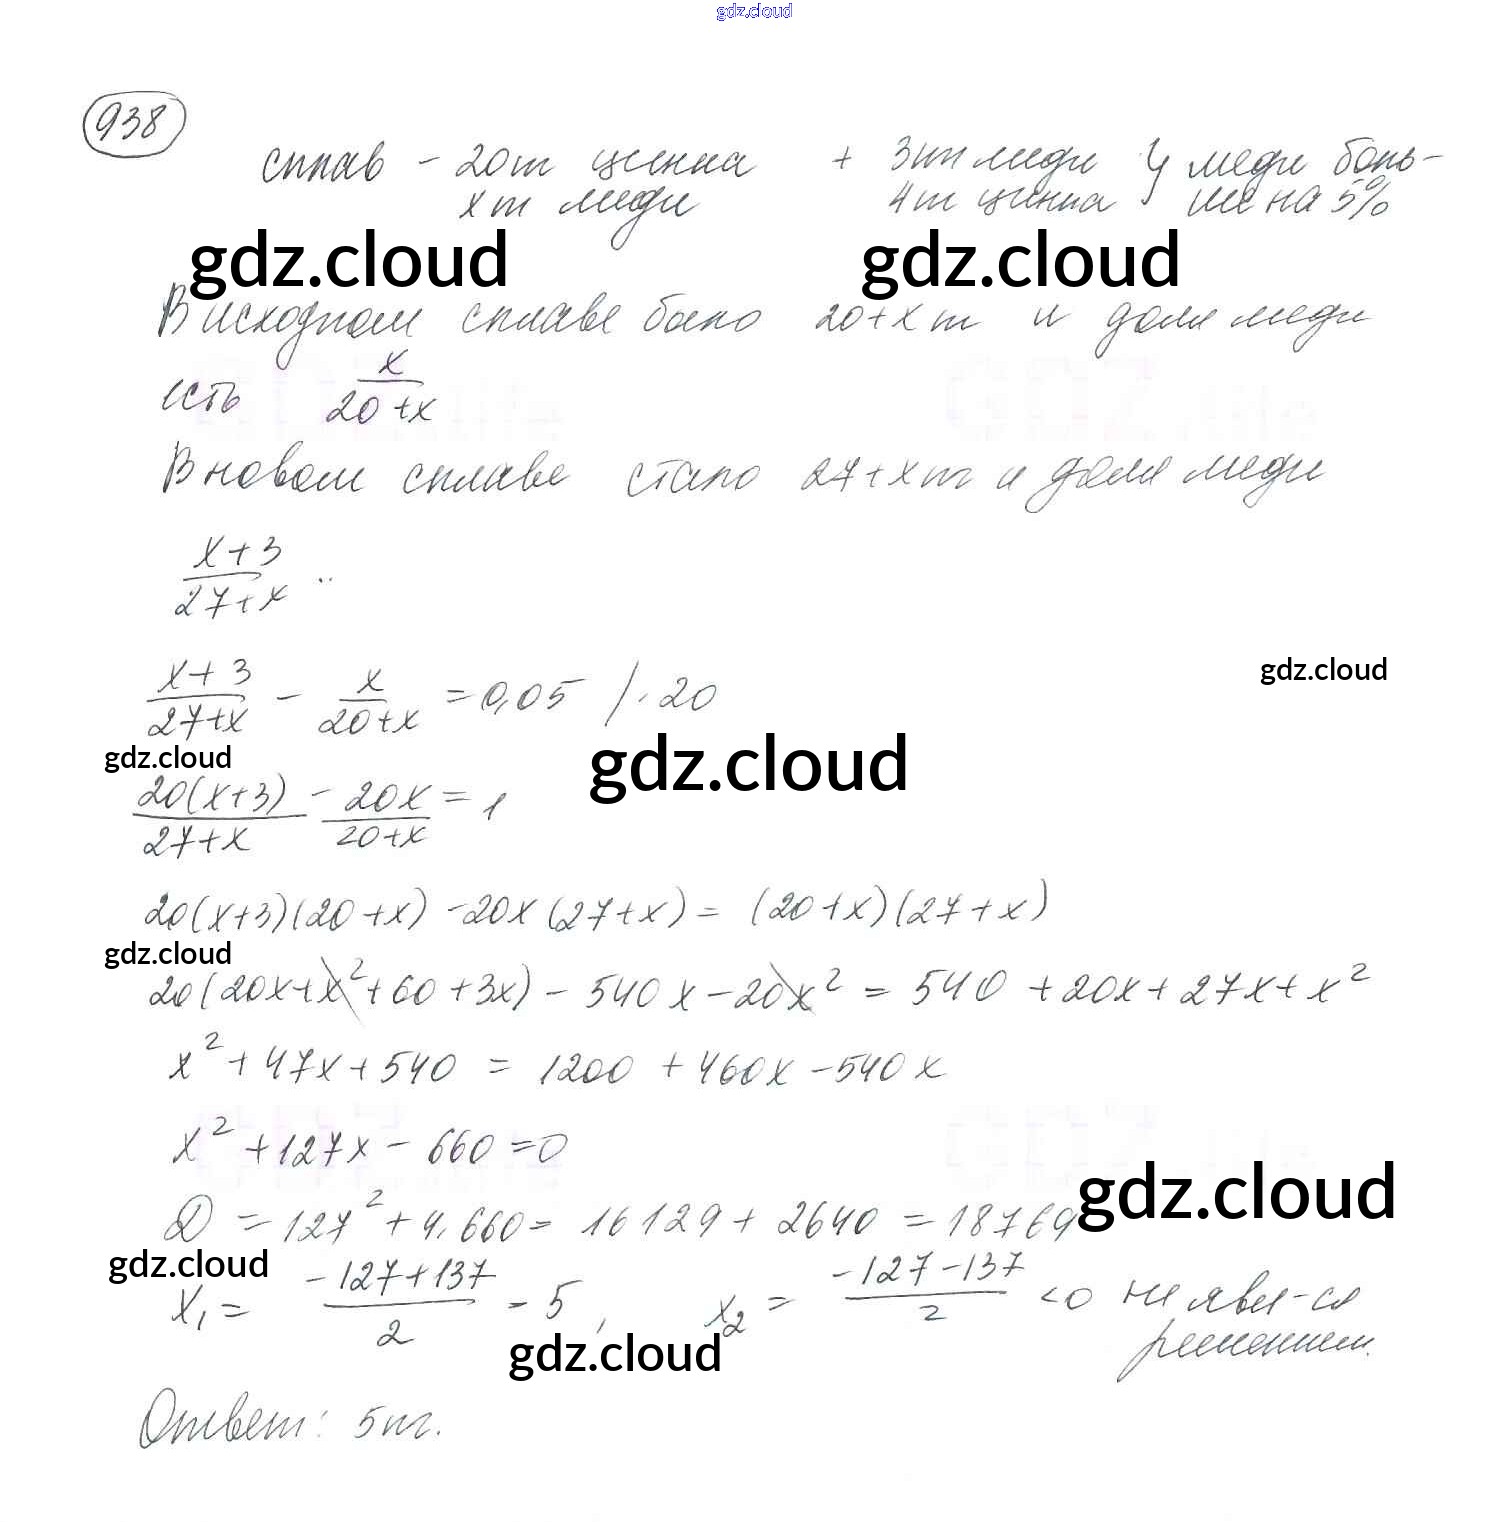 gdz.cloud
938
сплав - 20т цинка + 3т меди } меди боль-
x т меди 4т цинка ше на 5%
gdz.cloud gdz.cloud
В исходном сплаве было 20+x т и доля меди
есть x/(20+x)
В новом сплаве стало 27+x т и доля меди
(x+3)/(27+x) ..
gdz.cloud
(x+3)/(27+x) - x/(20+x) = 0,05 / · 20
gdz.cloud gdz.cloud
20(x+3)/(27+x) - 20x/(20+x) = 1
20(x+3)(20+x) - 20x(27+x) = (20+x)(27+x)
gdz.cloud
20(20x+x²+60+3x) - 540x - 20x² = 540 + 20x + 27x + x²
x² + 47x + 540 = 1200 + 460x - 540x
x² + 127x - 660 = 0
gdz.cloud
D = 127² + 4·660 = 16129 + 2640 = 18769
gdz.cloud
x₁ = (-127+137)/2 = 5, x₂ = (-127-137)/2 <0 не явл-ся
решением.
gdz.cloud
Ответ: 5т.